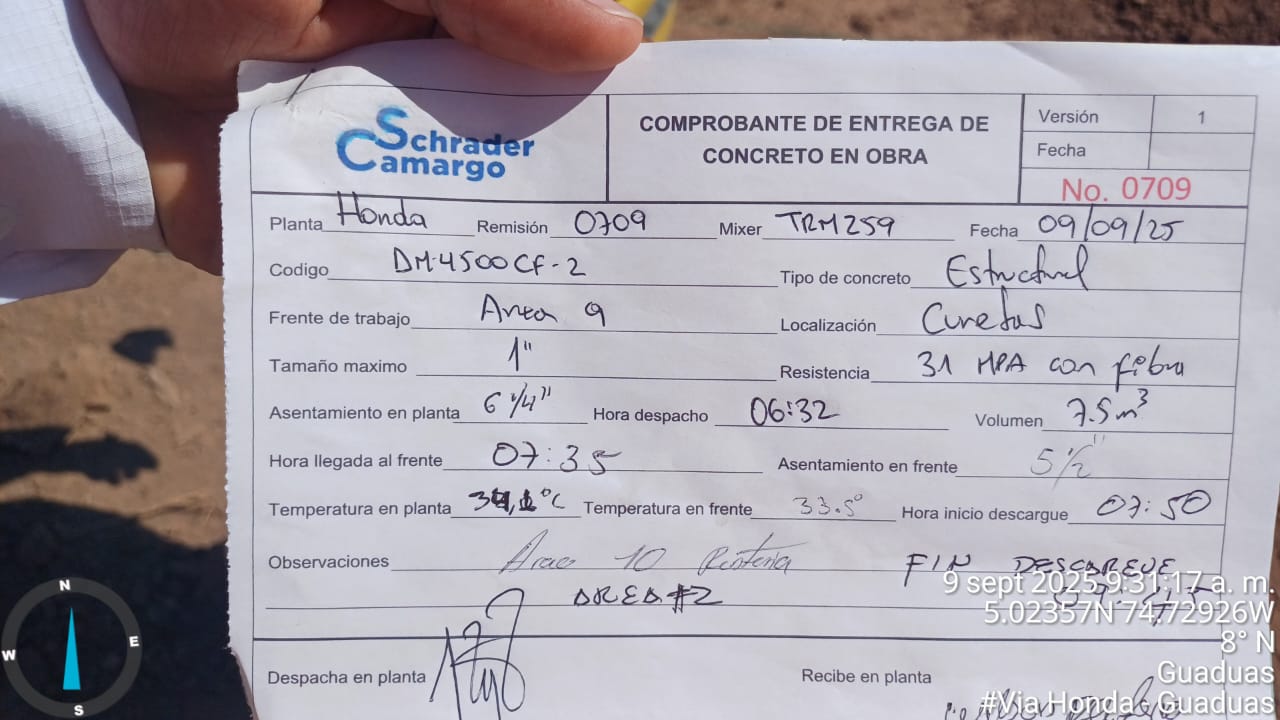 Schrader Camargo
COMPROBANTE DE ENTREGA DE CONCRETO EN OBRA
Versión 1
Fecha
No. 0709
Planta Honda Remisión 0709 Mixer TRM259 Fecha 09/09/25
Codigo DM-4500CF-2 Tipo de concreto Estructural
Frente de trabajo Area 9 Localización Cunetas
Tamaño maximo 1" Resistencia 31 MPA con fibra
Asentamiento en planta 6 1/4" Hora despacho 06:32 Volumen 7.5m³
Hora llegada al frente 07:35 Asentamiento en frente 5 1/2"
Temperatura en planta °C Temperatura en frente 33.5° Hora inicio descargue 07:50
Observaciones 10 FIN DESCARGUE
AREA #2
Despacha en planta Recibe en planta
9 sept 2025 9:31:17 a. m.
5.02357N 74.72926W
8° N
Guaduas
#Via Honda - Guaduas
N
E
S
W